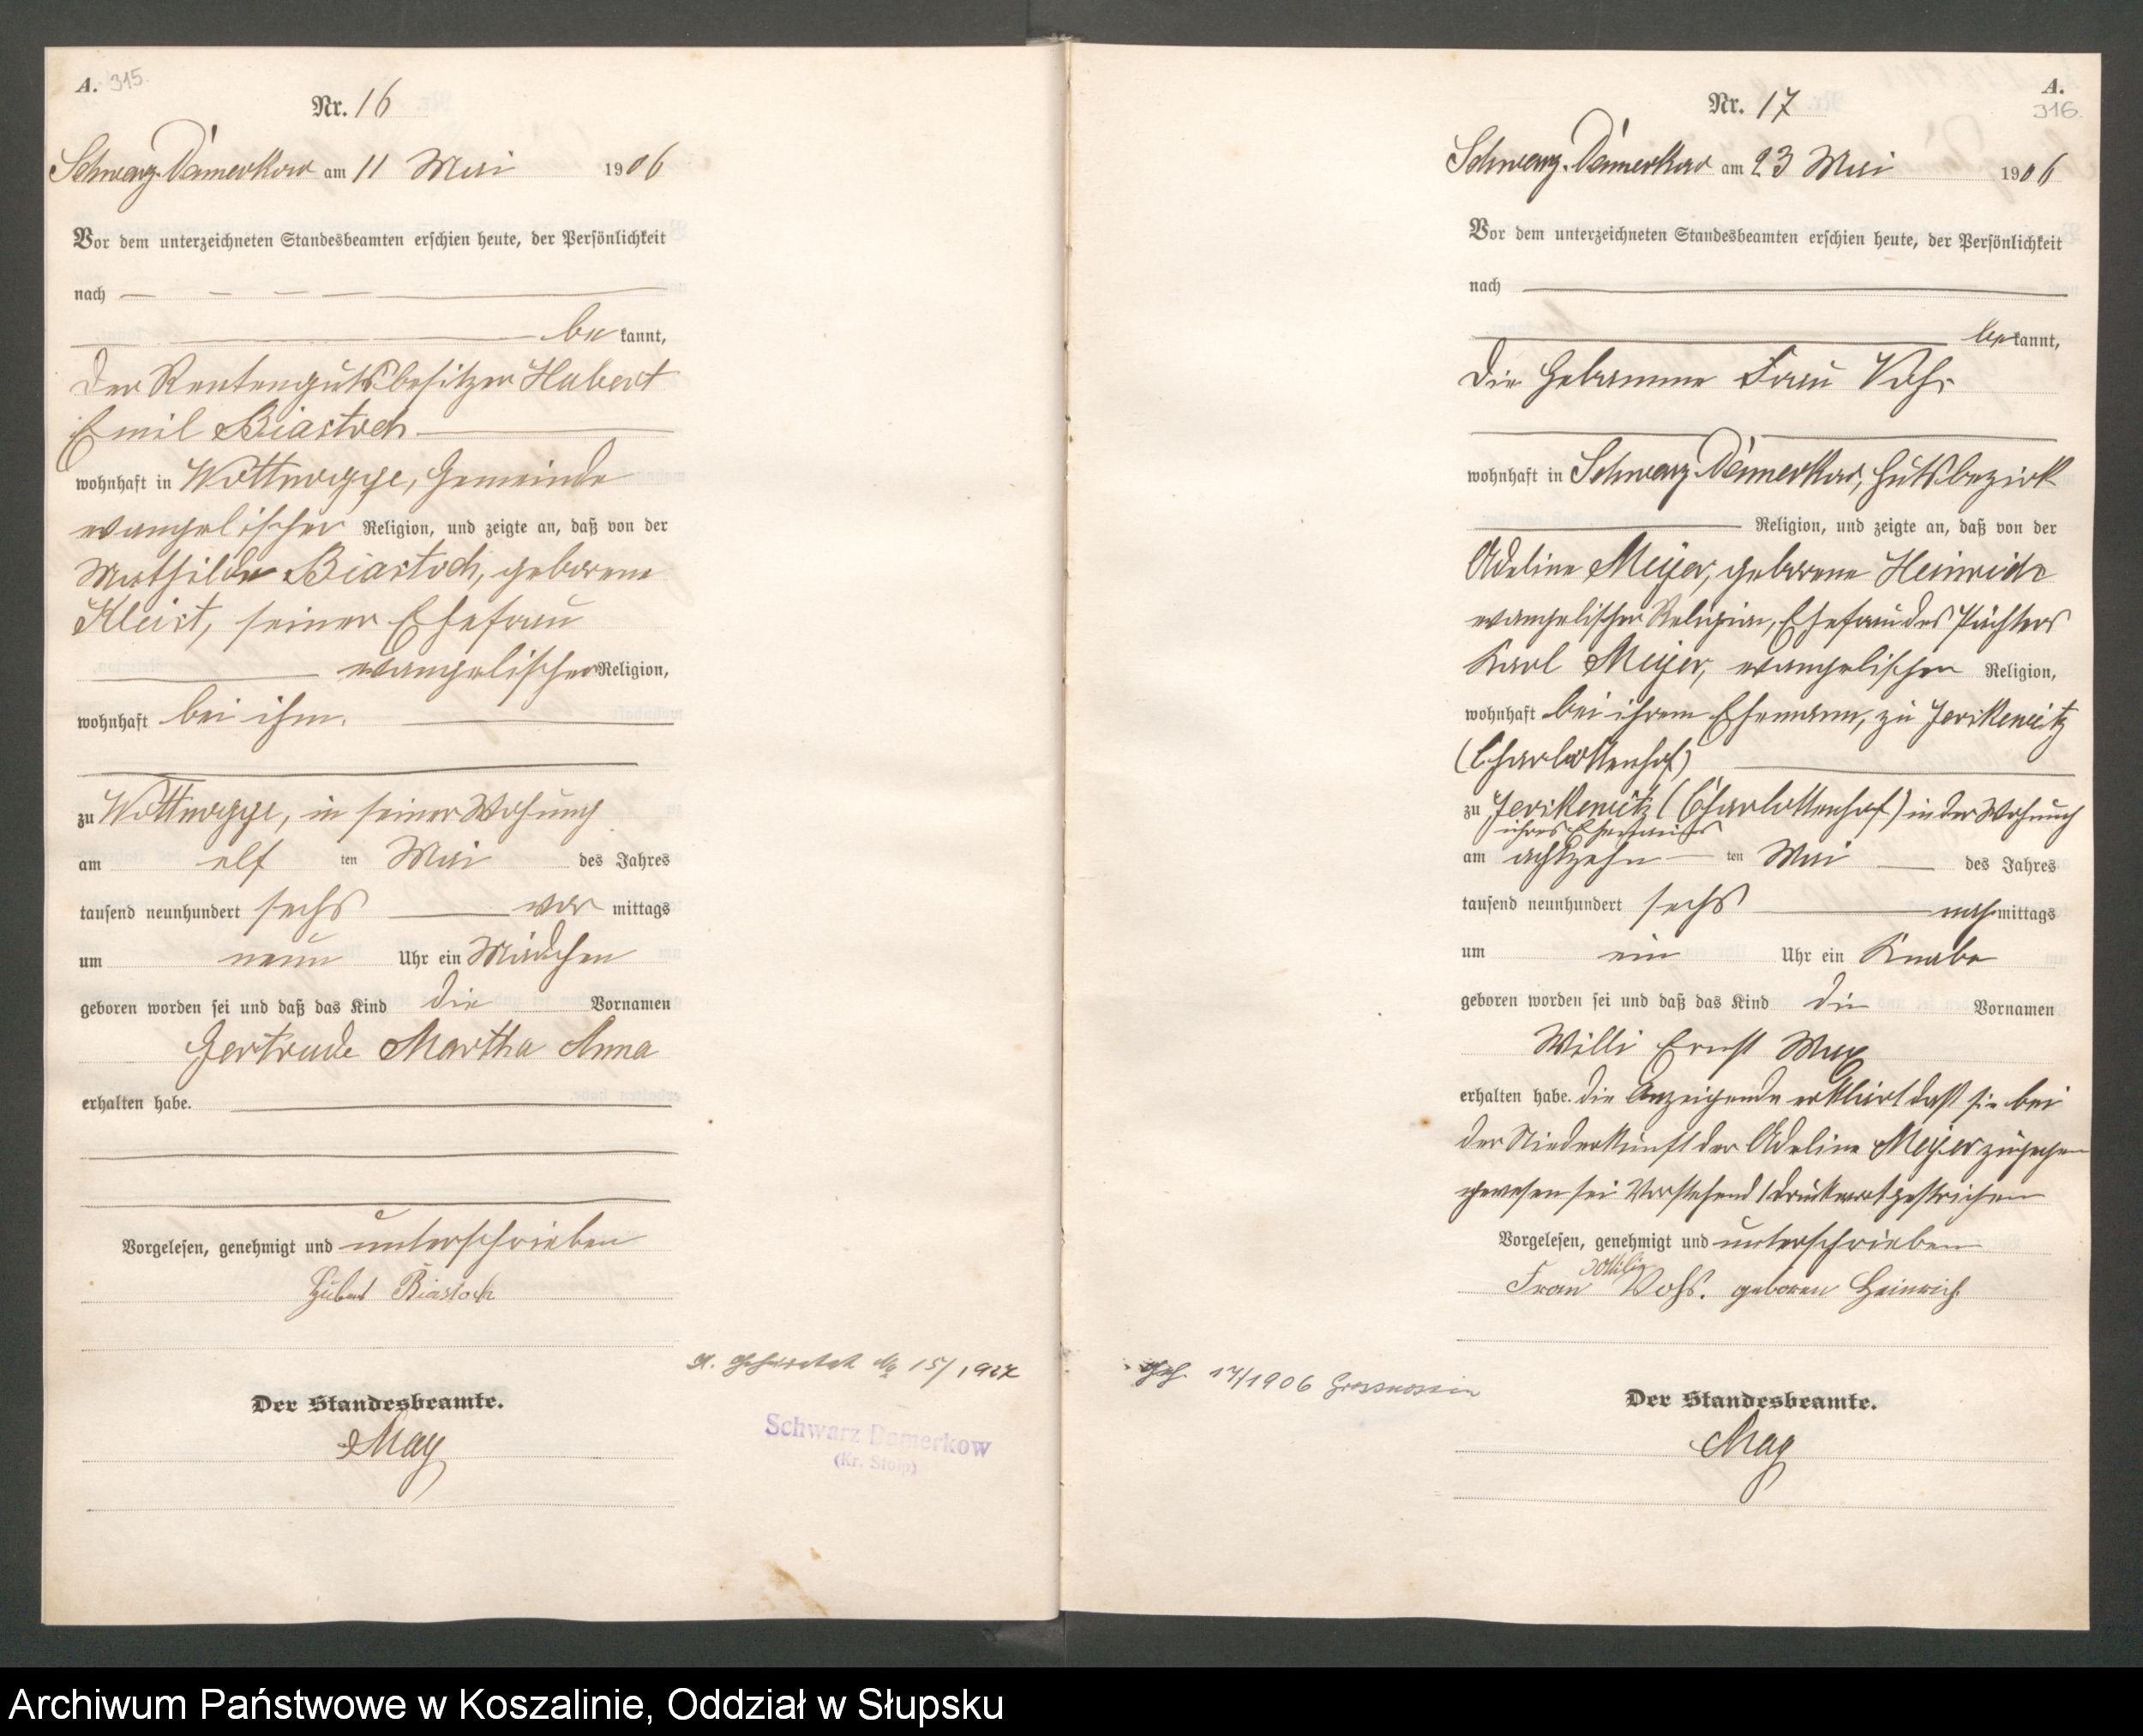 A. 315.
Nr. 16
Schwarz-Damerkow am 11 Mai 1906
Vor dem unterzeichneten Standesbeamten erschien heute, der Persönlichkeit
nach
be kannt,
der Rentengutsbesitzer Hubert
Emil Biastoch
wohnhaft in Wottnogge, Gemeinde
evangelischer Religion, und zeigte an, daß von der
Mathilde Biastoch, geborene
Kleist, seiner Ehefrau
evangelischer Religion,
wohnhaft bei ihm,
zu Wottnogge, in seiner Wohnung
am elf ten Mai des Jahres
tausend neunhundert sechs vor mittags
um neun Uhr ein Mädchen
geboren worden sei und daß das Kind die Vornamen
Gertrude Martha Anna
erhalten habe.
Vorgelesen, genehmigt und unterschrieben
Hubert Biastoch
Der Standesbeamte.
May
15/1927
Schwarz Damerkow
(Kr. Stolp)
A.
316.
Nr. 17
Schwarz-Damerkow am 23 Mai 1906
Vor dem unterzeichneten Standesbeamten erschien heute, der Persönlichkeit
nach
be kannt,
die Hebamme Frau Vohs
wohnhaft in Schwarz-Damerkow, Gutsbezirk
Religion, und zeigte an, daß von der
Adeline Meyer, geborene Heinrich
evangelischer Religion, Ehefrau des Pächters
Karl Meyer, evangelischer Religion,
wohnhaft bei ihrem Ehemann, zu Jerskewitz
(Charlottenhof)
zu Jerskewitz (Charlottenhof) in der Wohnung
ihres Ehemannes
am achtzehn ten Mai des Jahres
tausend neunhundert sechs nach mittags
um ein Uhr ein Knabe
geboren worden sei und daß das Kind die Vornamen
Willi Ernst Max
erhalten habe. die Anzeigende erklärt daß sie bei
der Niederkunft der Adeline Meyer zugegen
gewesen sei Vorstehend 1 Druckwort gestrichen
Vorgelesen, genehmigt und unterschrieben
Ottilie
Frau Vohs. geboren Heinrich
17/1906
Der Standesbeamte.
May
Archiwum Państwowe w Koszalinie, Oddział w Słupsku